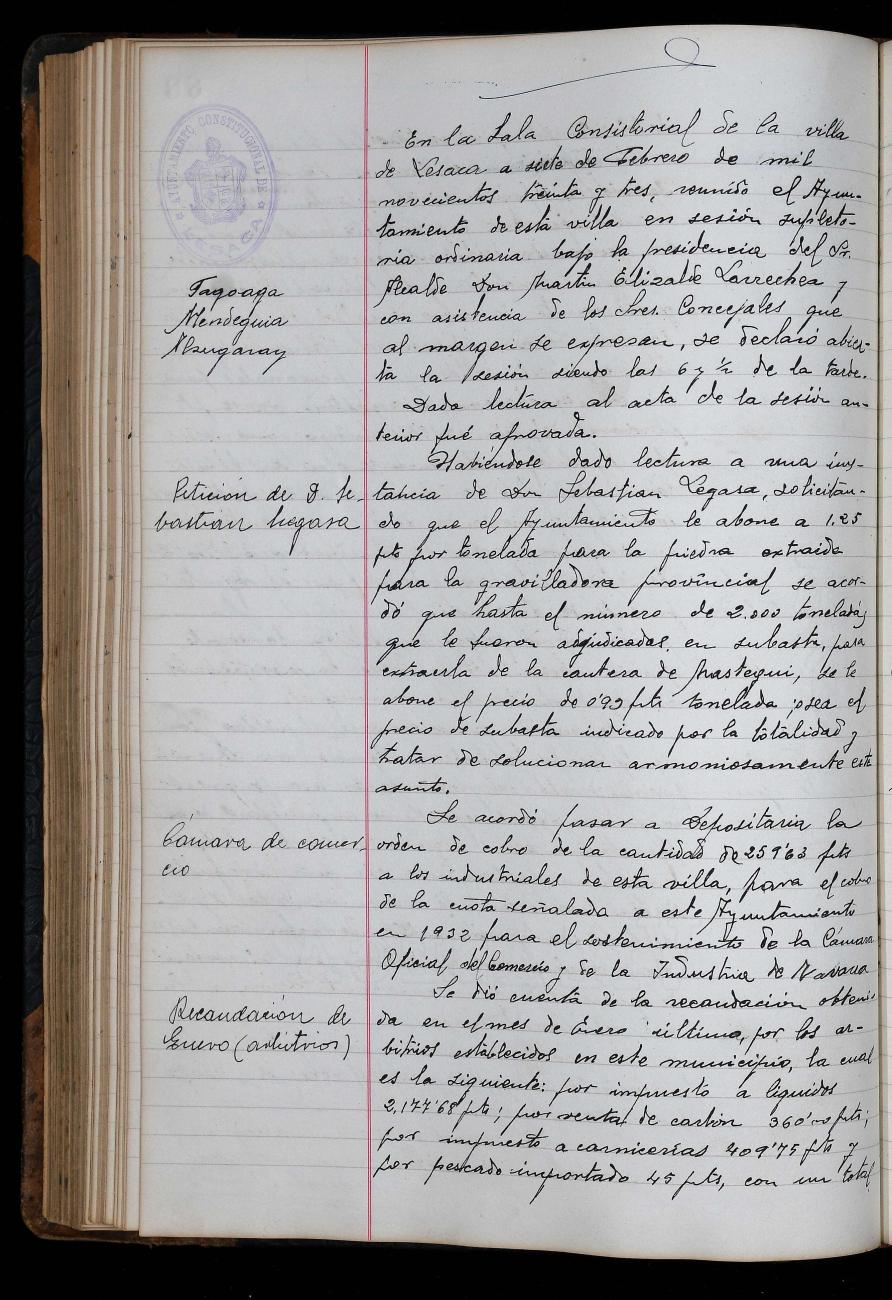 AYUNTAMIENTO CONSTITUCIONAL DE
LESACA
En la Sala Consistorial de la villa
de Lesaca a siete de Febrero de mil
novecientos treinta y tres, reunido el Ayun-
tamiento de esta villa en sesión supleto-
ria ordinaria bajo la presidencia del Sr.
Alcalde Don Martin Elizalde Larrechea y
con asistencia de los Sres. Concejales que
al margen se expresan, se declaró abier-
ta la sesión siendo las 6 y ½ de la tarde.
Tagoaga
Mendeguia
Alzugaray
Dada lectura al acta de la sesión an-
terior fué aprovada.
Petición de D. Se-
bastian Legasa
Habiéndose dado lectura a una ins-
tancia de Don Sebastian Legasa, solicitan-
do que el Ayuntamiento le abone a 1,25
pts por tonelada para la piedra extraida
para la gravilladora provincial se acor-
dó que hasta el número de 2.000 toneladas
que le fueron adjudicadas, en subasta, para
extraerla de la cantera de Mastegui, se le
abone el precio de pts tonelada, osea el
precio de subasta indicado por la totalidad y
tratar de solucionar armoniosamente este
asunto.
Cámara de comer-
cio
Se acordó pasar a Depositaria la
orden de cobro de la cantidad de 259'63 pts
a los industriales de esta villa, para el cobro
de la cuota señalada a este Ayuntamiento
en 1932 para el sostenimiento de la Cámara
Oficial del Comercio y de la Industria de Navarra
Recaudación de
Enero (arbitrios)
Se dió cuenta de la recaudación obteni-
da en el mes de Enero último, por los ar-
bitrios establecidos en este municipio, la cual
es la siguiente: por impuesto a líquidos
2.177'68 pts; por venta de carbón 360'00 pts;
por impuesto a carnicerías 409'75 pts y
por pescado importado 45 pts, con un total